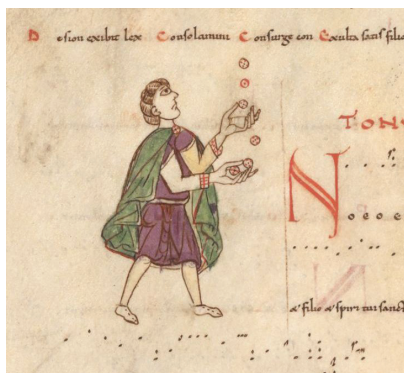 D e sion exibit lex Consolamini Consurge con Exulta satis filia
TONV
Noeoe
æ filio æ spiritui sanct